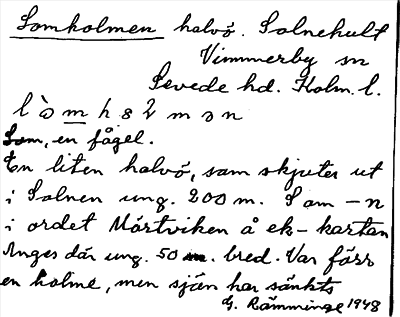 Lomholmen halvö. Solnehult
Vimmerby sn
Sevede hd. Kalm. l.
Lom, en fågel.
En liten halvö, som skjuter ut
i Solnen ung. 200 m. Lom – n
i ordet Mörtviken å ek-kartan
Anges där ung. 50 m. bred. Var förr
en holme, men sjön har sänkts
G. Rämminge 1948